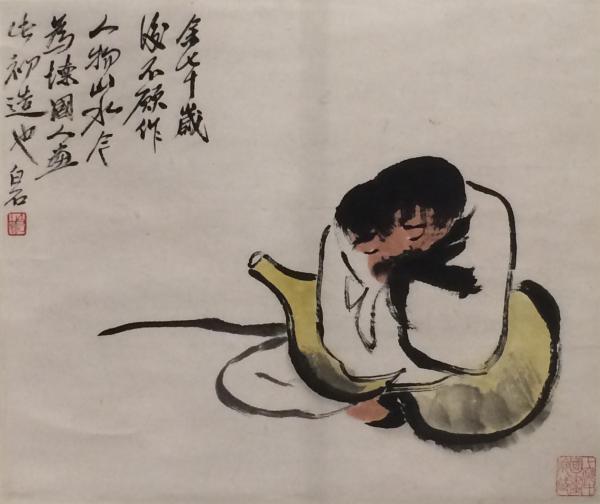 余七十歲
後不願作
人物山水今
為國人畫
此初造也 白石